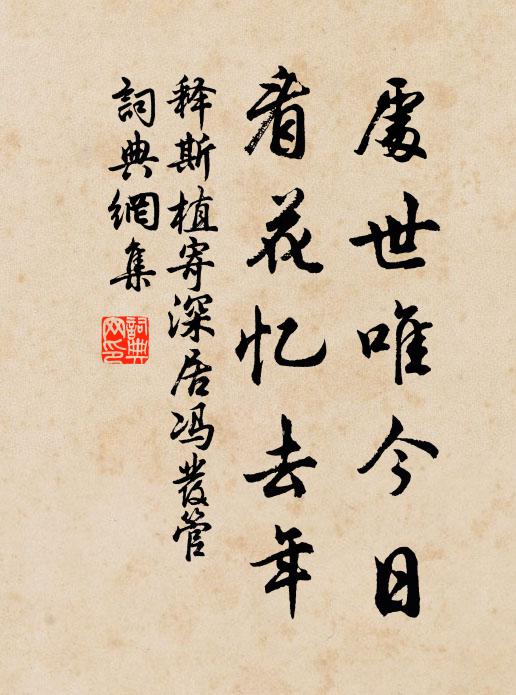 處世唯今日
看花忆去年
释斯植寄深居冯發管
詞典網集
詞典網印